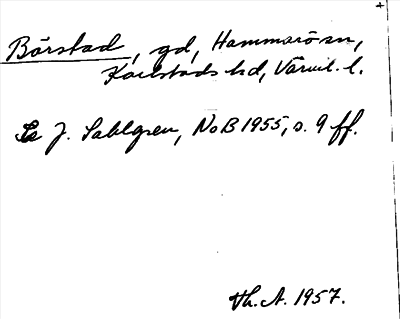 Börstad, gd, Hammarö sn,
Karlstads hd, Värml. l.
Se J. Sahlgren, NoB 1955, s. 9 ff.
Th. A. 1957.